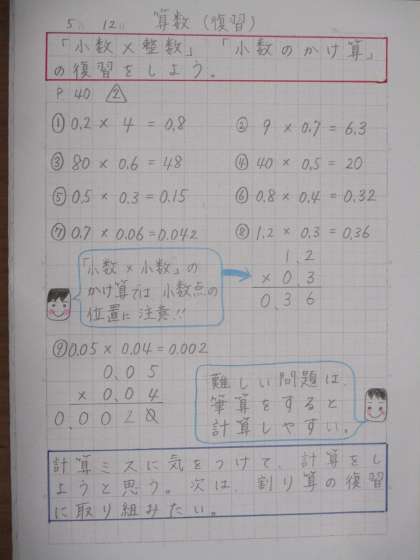 5 12 算数（復習）
「小数×整数」「小数のかけ算」
の復習をしよう。
P 40 ②
① 0.2 × 4 = 0.8
② 9 × 0.7 = 6.3
③ 80 × 0.6 = 48
④ 40 × 0.5 = 20
⑤ 0.5 × 0.3 = 0.15
⑥ 0.8 × 0.4 = 0.32
⑦ 0.7 × 0.06 = 0.042
⑧ 1.2 × 0.3 = 0.36
「小数×小数」の
かけ算では小数点の
位置に注意!!
1.2
× 0.3
0.36
⑨ 0.05 × 0.04 = 0.002
0.05
× 0.04
0.0020
難しい問題は、
筆算をすると
計算しやすい。
計算ミスに気をつけて、計算をし
ようと思う。次は、割り算の復習
に取り組みたい。